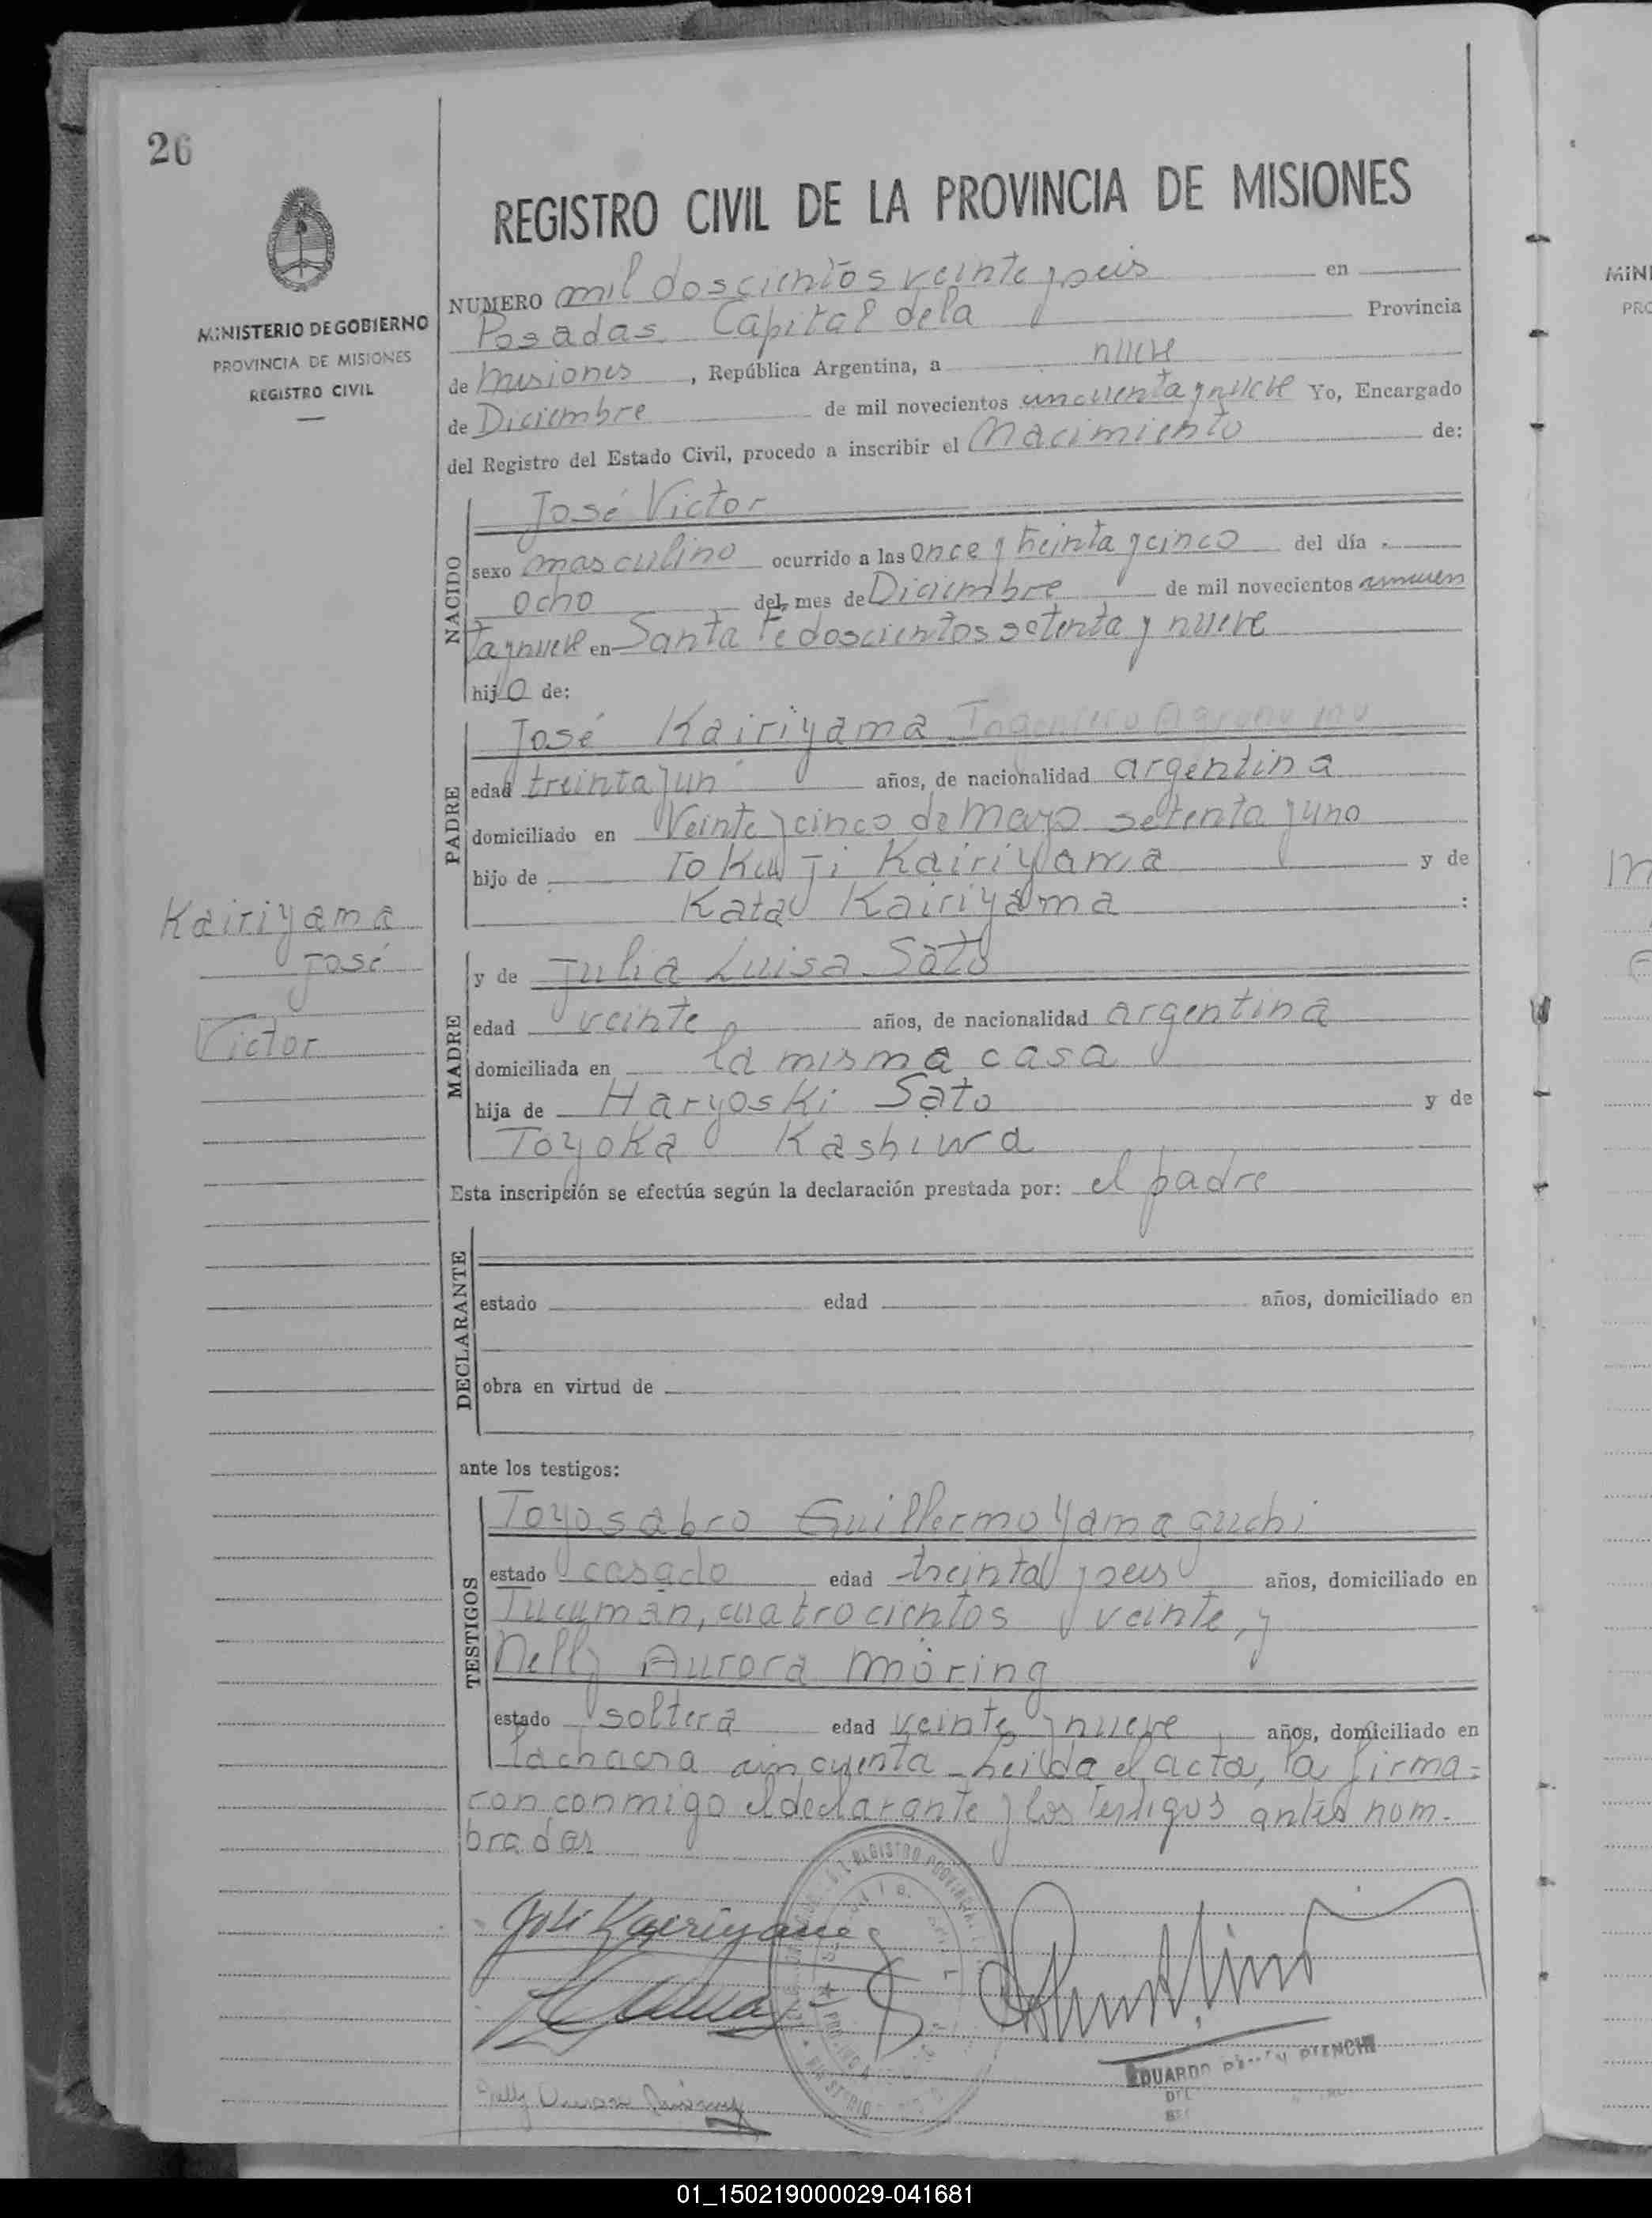 26
REGISTRO CIVIL DE LA PROVINCIA DE MISIONES
MINISTERIO DE GOBIERNO
PROVINCIA DE MISIONES
REGISTRO CIVIL
NUMERO mil doscientos veinte y seis en
Posadas, Capital de la Provincia
de Misiones, República Argentina, a nueve
de Diciembre de mil novecientos cincuenta y nueve Yo, Encargado
del Registro del Estado Civil, procedo a inscribir el Nacimiento de:
NACIDO
José Victor
sexo masculino ocurrido a las once y treinta y cinco del día
ocho del mes de Diciembre de mil novecientos cincuen
ta y nueve en Santa Fe doscientos setenta y nueve
hijo de:
PADRE
José Kairiyama Ingeniero Agronomo
edad treinta y un años, de nacionalidad argentina
domiciliado en Veinte y cinco de Mayo setenta y uno
hijo de Tokuji Kairiyama y de
Kata Kairiyama :
Kairiyama
José
Victor
MADRE
y de Julia Luisa Sato
edad veinte años, de nacionalidad argentina
domiciliada en la misma casa
hija de Haryoski Sato y de
Toyoka Kashiwa
Esta inscripción se efectúa según la declaración prestada por: el padre
DECLARANTE
estado edad años, domiciliado en
obra en virtud de
ante los testigos:
TESTIGOS
Toyosabro Guillermo Yamaguchi
estado casado edad treinta y seis años, domiciliado en
Tucumán, cuatrocientos veinte, y
Nelly Aurora Moring
estado soltera edad veinte y nueve años, domiciliado en
Lachacra cincuenta - heilda el acta, la firma=
con conmigo el declarante y los testigos antes nom-
brados
José Kairiyama
EDUARDO
01_150219000029-041681